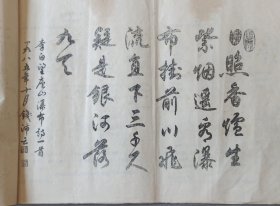 日照香爐生
紫烟遥看瀑
布挂前川飛
流直下三千尺
疑是銀河落
九天
李白望庐山瀑布詩一首
一九八五年十月錢沛云